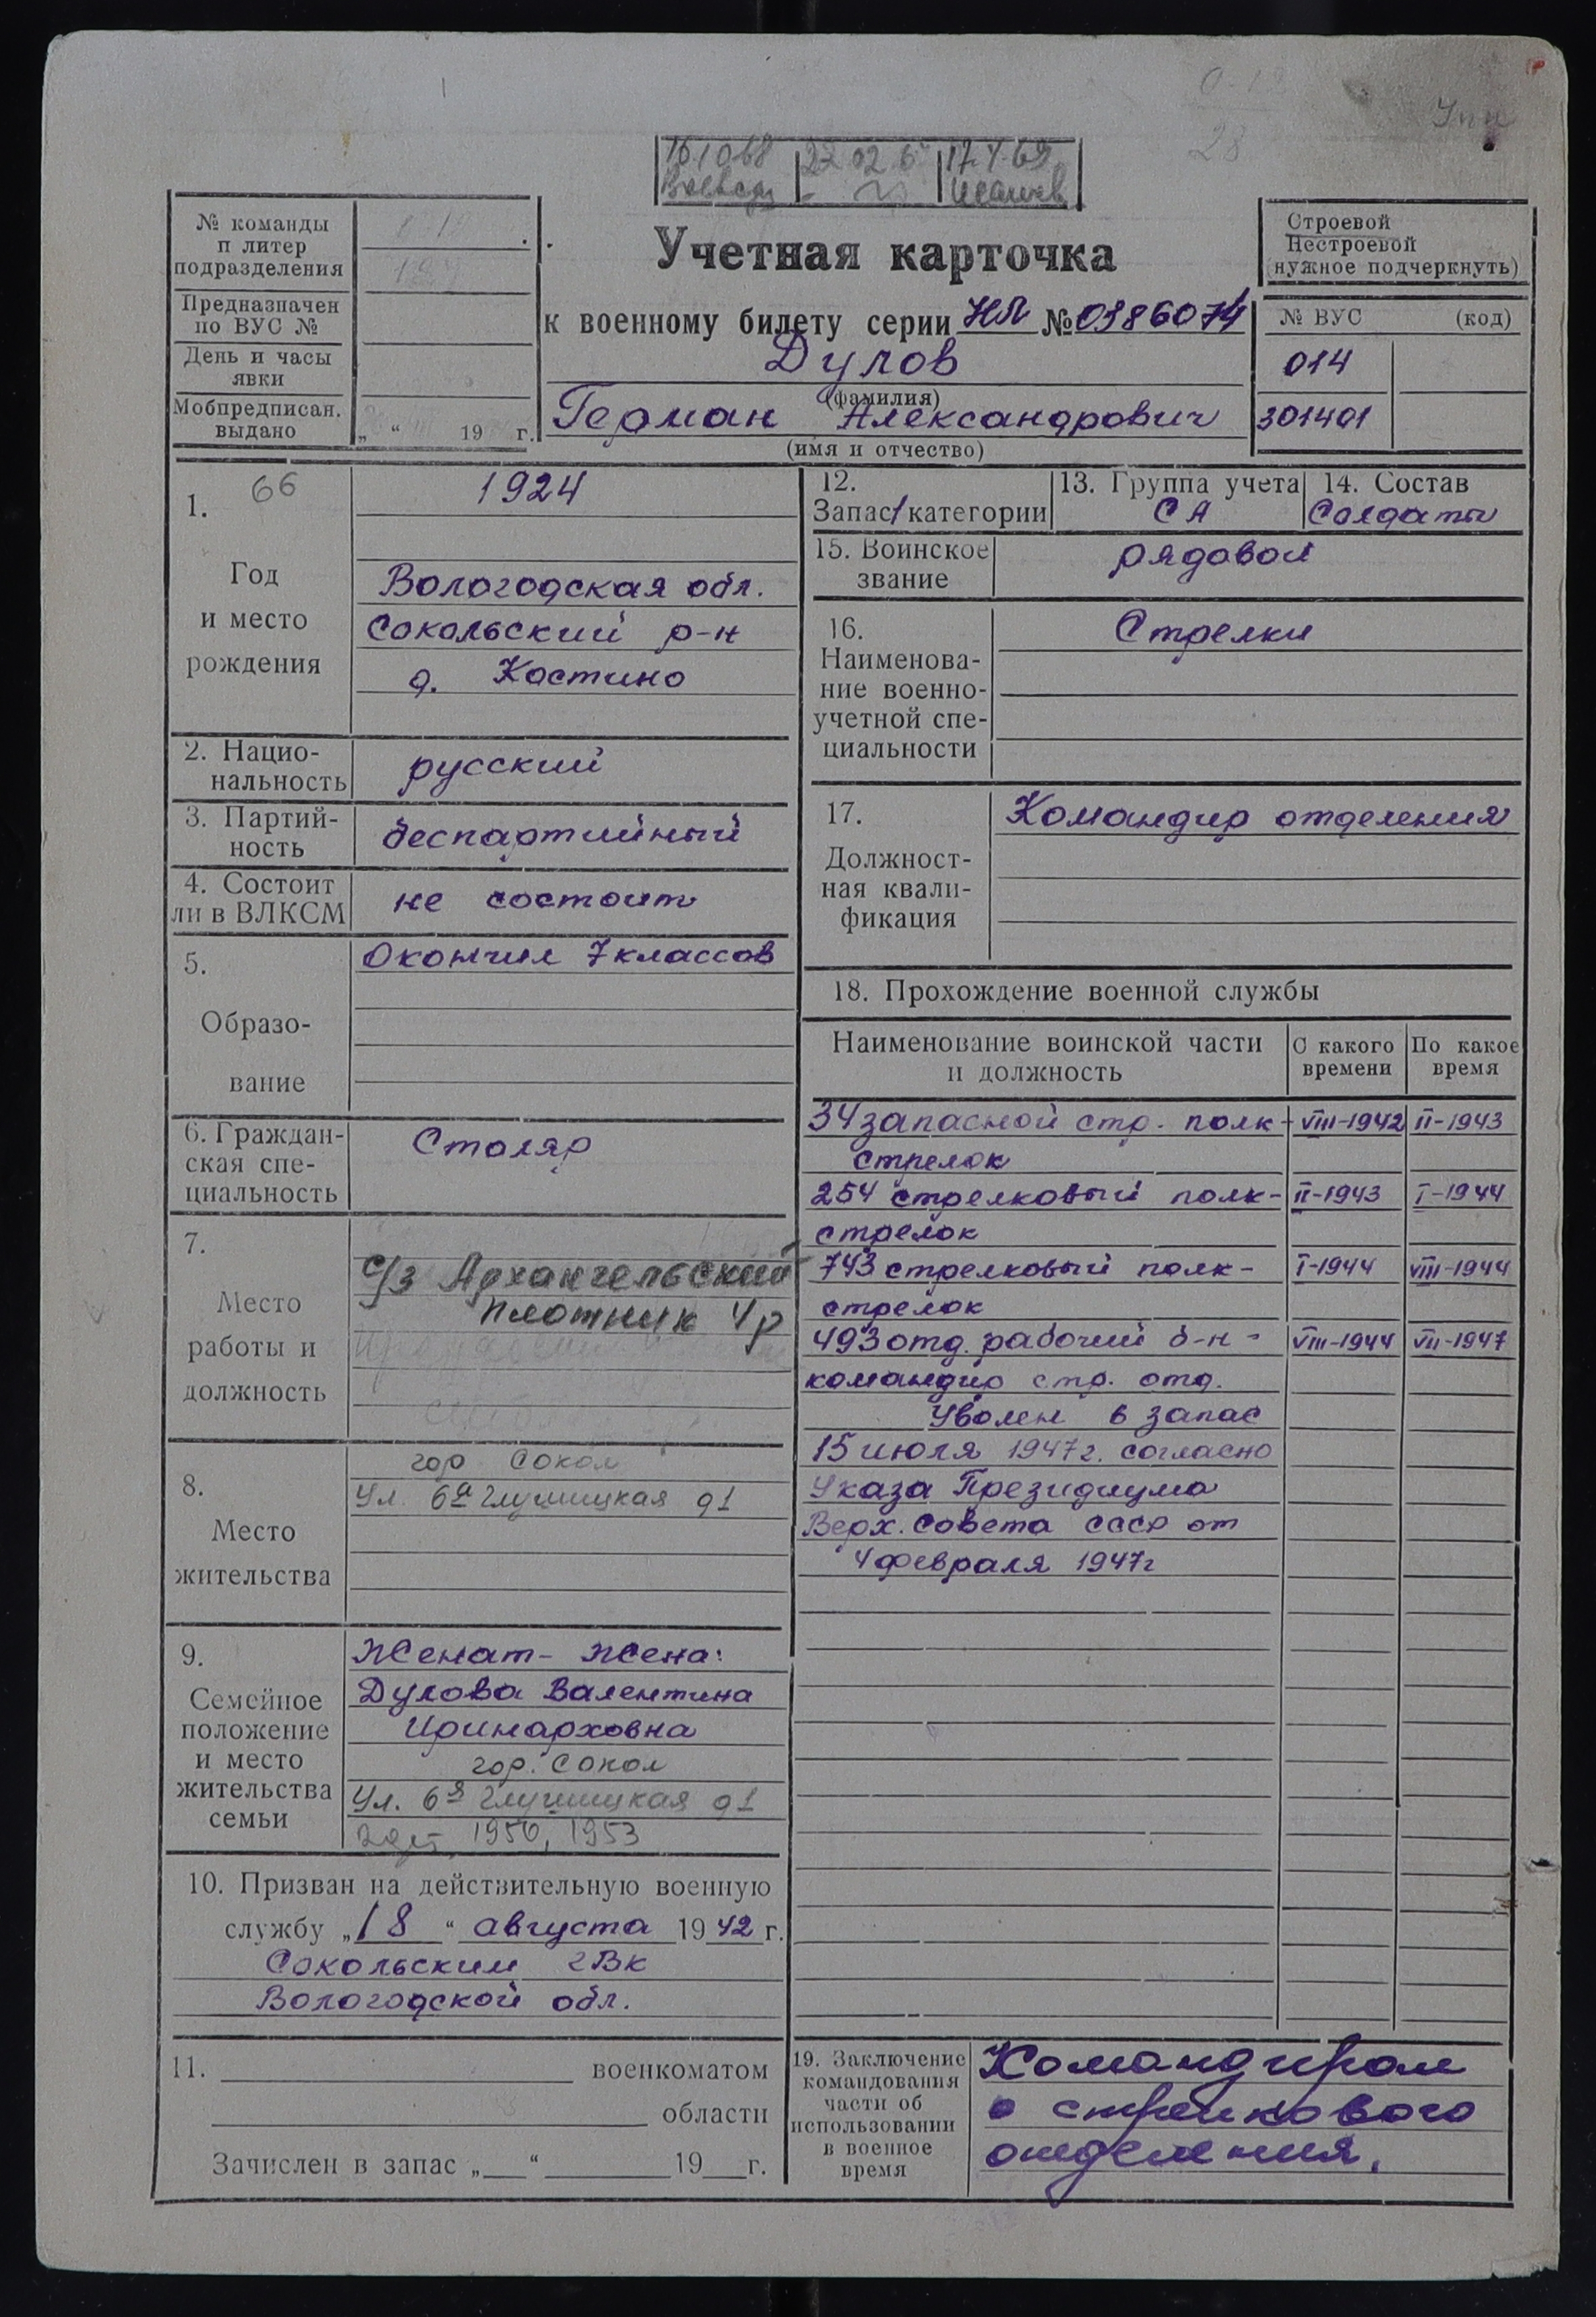 28
151068
22 02 6
17.4.69
№ команды
п литер
подразделения
Предназначен
по ВУС №
День и часы
явки
Мобпредписан.
выдано
„ “ 19 г.
Учетная карточка
к военному билету серии НЛ № 0386074
Дулов
(фамилия)
Герман Александрович
(имя и отчество)
Строевой
Нестроевой
(нужное подчеркнуть)
№ ВУС (код)
014
301401
66
1.
Год
и место
рождения
1924
Вологодская обл.
Сокольский р-н
д. Костино
2. Нацио-
нальность
русский
3. Партий-
ность
беспартийный
4. Состоит
ли в ВЛКСМ
не состоит
5.
Образо-
вание
Окончил 7 классов
6. Граждан-
ская спе-
циальность
Столяр
7.
Место
работы и
должность
с/з Архангельский
плотник 4р
8.
Место
жительства
гор Сокол
ул. 6я Глушицкая д1
9.
Семейное
положение
и место
жительства
семьи
Женат - жена:
Дулова Валентина
Иринарховна
гор. Сокол
ул. 6я Глушицкая д1
1950, 1953
10. Призван на действительную военную
службу „18“ августа 1942 г.
Сокольским гВк
Вологодской обл.
11. военкоматом
области
Зачислен в запас „ “ 19 г.
12.
Запас/категории
13. Группа учета
СА
14. Состав
Солдаты
15. Воинское
звание
рядовой
16.
Наименова-
ние военно-
учетной спе-
циальности
Стрелки
17.
Должност-
ная квали-
фикация
Командир отделения
18. Прохождение военной службы
Наименование воинской части
и должность
С какого
времени
По какое
время
34 запасной стр. полк - VIII-1942 II-1943
стрелок
254 стрелковый полк - II-1943 I-1944
стрелок
743 стрелковый полк - I-1944 VIII-1944
стрелок
493 отд. рабочий б-н - VIII-1944 VII-1947
командир стр. отд.
Уволен в запас
15 июля 1947г. согласно
Указа Президиума
Верх. Совета СССР от
4 февраля 1947г
19. Заключение
командования
части об
использовании
в военное
время
Командиром
стрелкового
отделения.